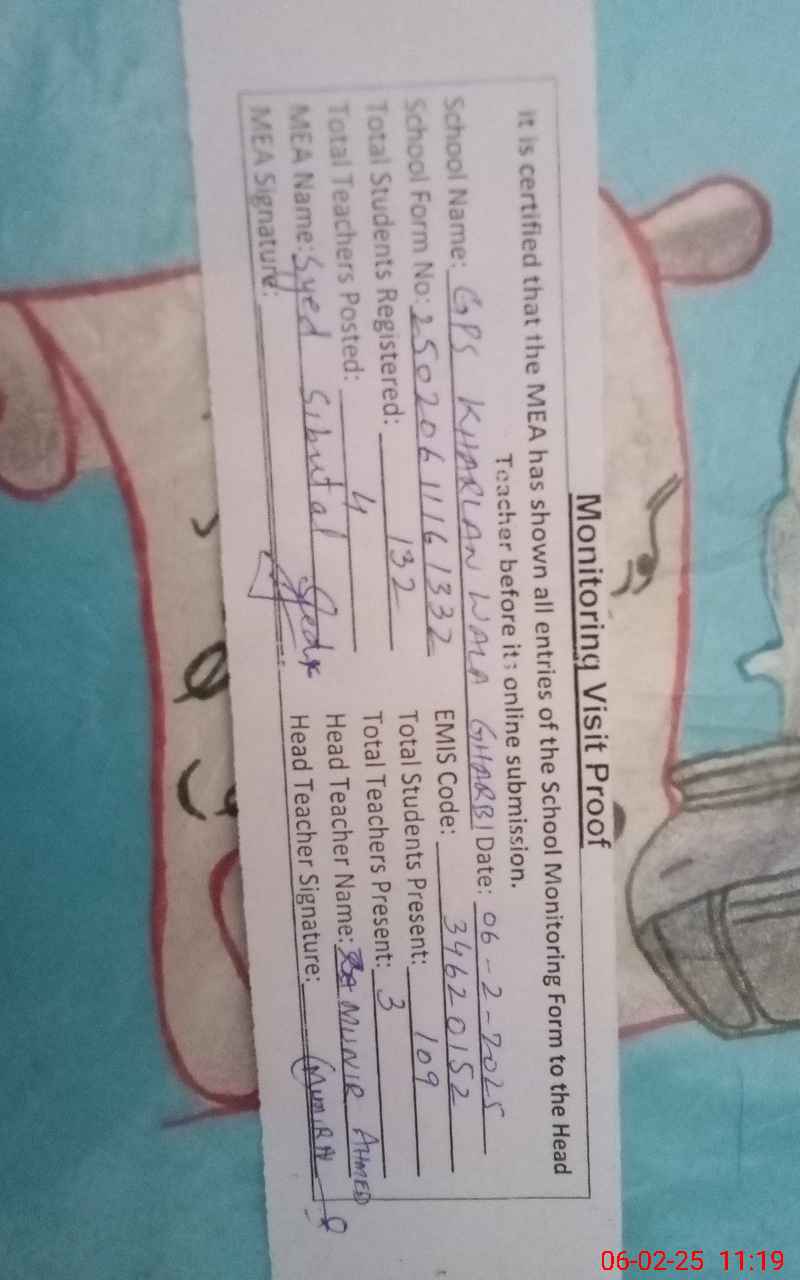 Monitoring Visit Proof
It is certified that the MEA has shown all entries of the School Monitoring Form to the Head
Teacher before its online submission.
School Name: GPS KHARLAN WALA GHARBI Date: 06-2-2025
School Form No: 25020611161332 EMIS Code: 34620152
Total Students Registered: 132 Total Students Present: 109
Total Teachers Posted: 4 Total Teachers Present: 3
MEA Name: Syed Head Teacher Name: MUNIR AHMED
MEA Signature: Head Teacher Signature:
06-02-25 11:19